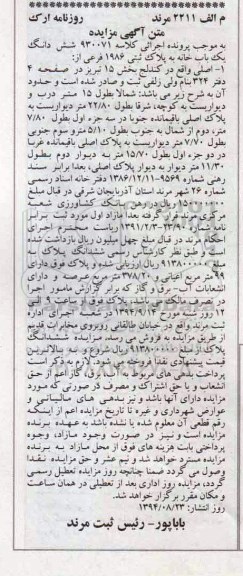 م الف ۲۲۱۱ مرند روزنامه ارک
متن آگهی مزایده
به موجب پرونده اجرائی کلاسه ۹۳۰۰۷۱ شش دانگ
یک باب خانه به پلاک ثبتی ۱۹۸۶ فرعی از:
۱- اصلی واقع در کندلج بخش ۱۵ تبریز در صفحه ۴
دفتر ۳۲۴ بنام ولی زلفی ثبت و صادر شده است و حدود
آن به شرح زیر می باشد: شمالا بطول ۱۵ متر درب و
دیواریست به کوچه، شرقا بطول ۲۲/۸۰ متر دیواریست به
پلاک اصلی باقیمانده جنوبا در سه جزء اول بطول ۷/۸۰
متر، دوم از شمال به جنوب بطول ۵/۱۰ مترو سوم جنوبی
بطول ۷/۷۰ متر دیواریست به پلاک اصلی باقیمانده غربا
در دو جزء اول بطول ۱۵/۷۰ متر به دیوار دوم بطول
۱۱/۳۰ متر دیوار به دیوار پلاک اصلی، بعدا برابر سند
رهنی شماره ۹۵۶۹-۱۳۸۶/۱۲/۱۱ دفتر خانه اسناد رسمی
شماره ۲۶ شهر مرند استان آذربایجان شرقی در قبال مبلغ
ریال در رهن بانک کشاورزی شعبه
مرکزی مرند قرار گرفته بعدا مازاد اول مورد ثبت برابر
نامه شماره ریاست محترم اجرای
احکام مرند در قبال مبلغ چهل میلیون ریال بازداشت شده
است و طبق نظر کارشناس رسمی ششدانگ پلاک به
مبلغ ۹۱۳۸۰۰۰۰۰ ریال ارزیابی شده و پلاک فوق دارای
۹۹ متر مربع اعیانی و ۳۷۸/۲۰ متر مربع عرصه و دارای
انشعابات آب- برق و گاز که برابر گزارش مامور اجرا
در تصرف مالک می باشد، پلاک فوق از ساعت ۹ الی
۱۲ روز سه مورخ ۱۳۹۴/۹/۱۳ در شعبه اجرای اداره
ثبت مرند واقع در خیابان طالقانی روبروی مخابرات قدیم
از طریق مزایده به فروش می رسد. مزایده ششدانگ
پلاک از مبلغ ۹۱۳۸۰۰۰۰۰ ریال شروع و به بالاترین
قیمت پیشنهادی نقدا فروخته می شود. لازم به ذکر است
پرداخت بدهی های مربوط به آب، برق، گاز اعم از حق
انشعاب و یا حق اشتراک و مصرف در صورتی که مورد
مزایده دارای آنها باشد و نیز بدهی های مالیاتی و
عوارض شهرداری و غیره تا تاریخ مزایده اعم از اینکه
رقم قطعی آن معلوم شده یا نشده باشد به عهده برنده
مزایده است و نیز در صورت وجود مازاد، وجوه
پرداختی بابت هزینه های فوق از محل مازاد به برنده
مزایده مسترد خواهد شد و نیم عشر و حق مزایده نقدا
وصول می گردد ضمنا چنانچه روز مزایده تعطیل رسمی
گردد، مزایده روز اداری بعد از تعطیلی در همان ساعت
و مکان مقرر برگزار خواهد شد.
روز انتشار: ۱۳۹۴/۰۸/۲۳
باباپور- رئیس ثبت مرند